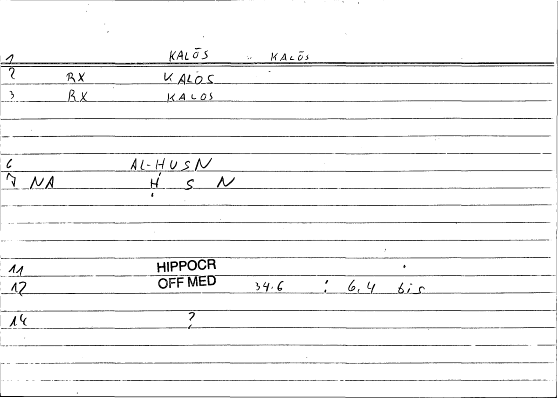 1 KALŌS KALŌS
2 RX KALOS
3 RX KALOS
6 AL-HUSN
7 NA Ḥ S N
11 HIPPOCR
12 OFF MED 34.6 : 6,4 bis
14 ?